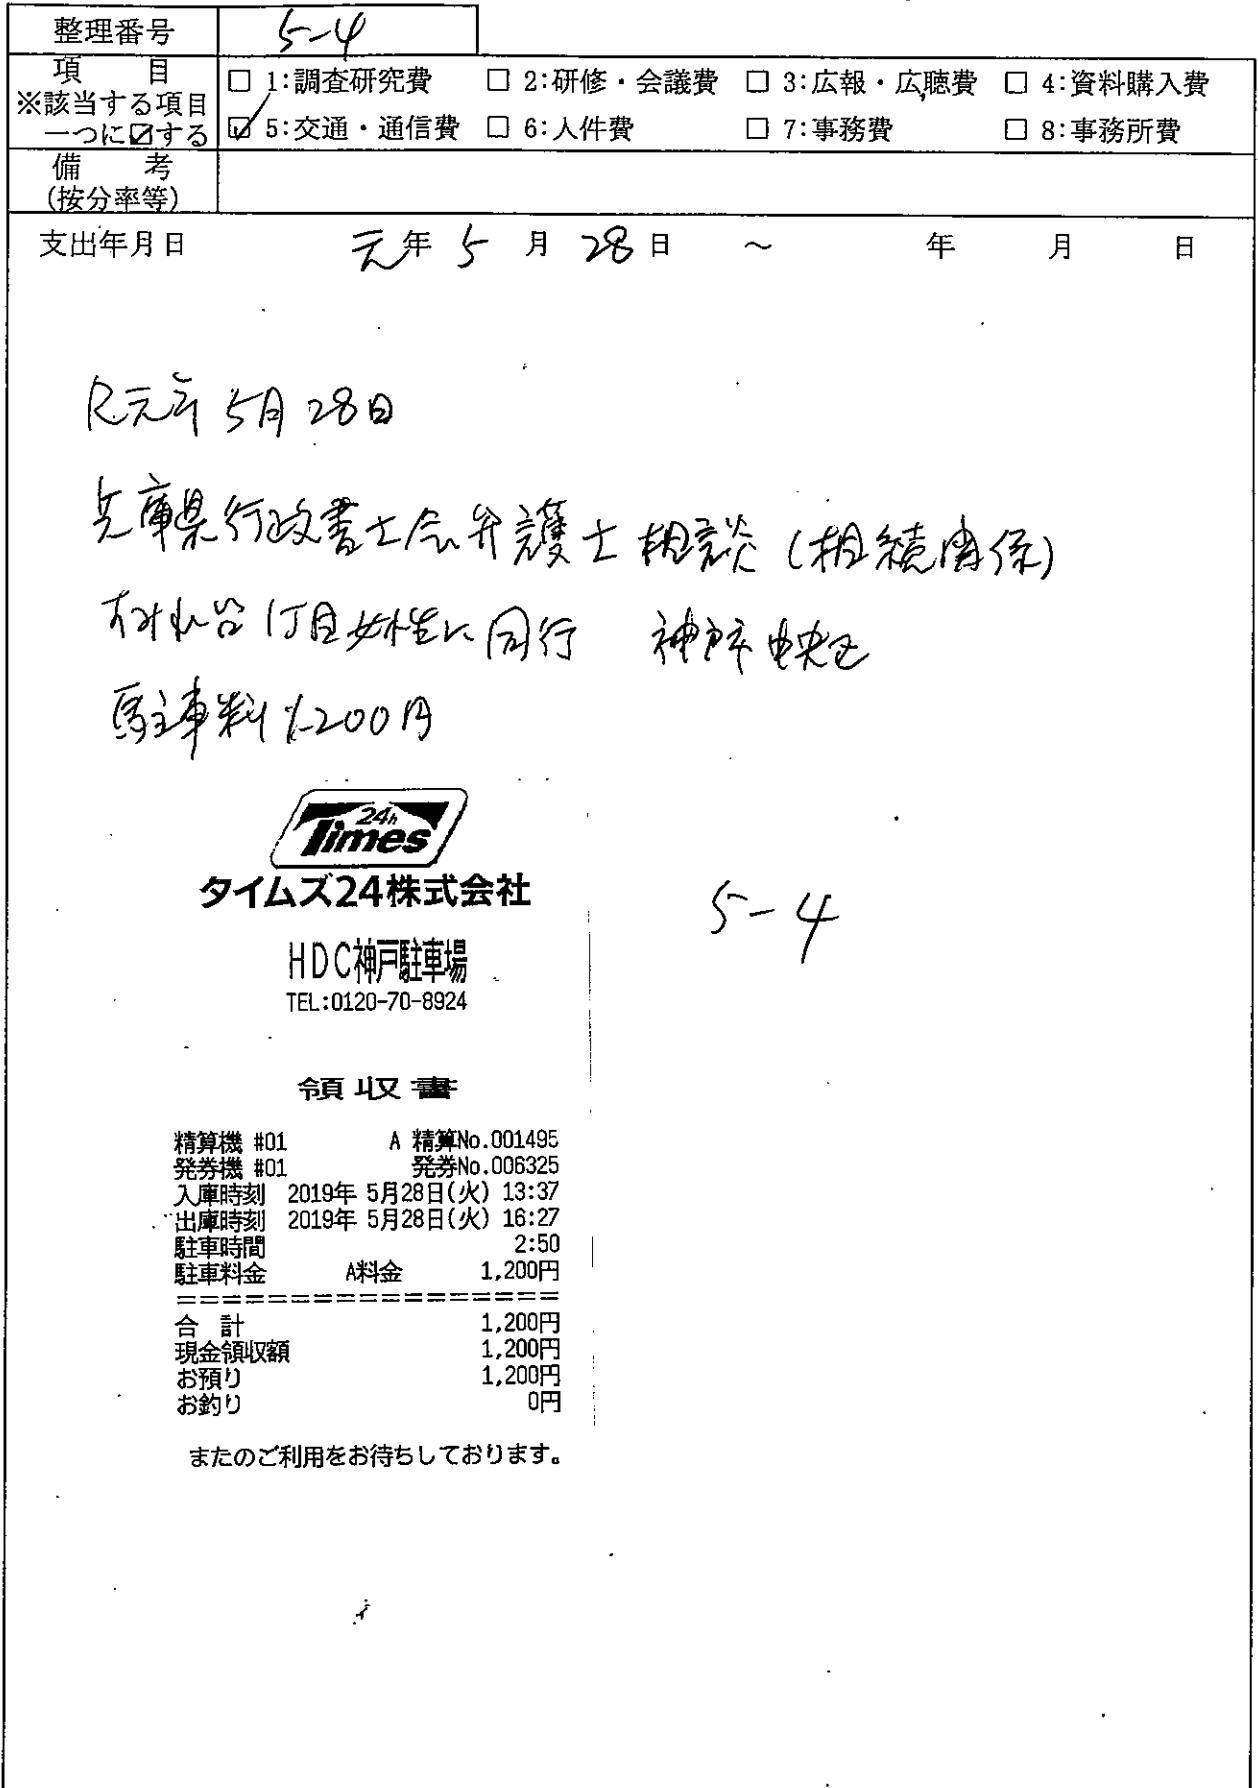 整理番号 5-4
項目 □ 1:調査研究費 □ 2:研修・会議費 □ 3:広報・広聴費 □ 4:資料購入費
※該当する項目
一つに☑する ☑ 5:交通・通信費 □ 6:人件費 □ 7:事務費 □ 8:事務所費
備考
(按分率等)
支出年月日 元年 5月 28日 ～ 年 月 日
R元年 5月 28日
兵庫県行政書士会 弁護士相談 (相続関係)
すみれ台 1丁目女性に同行 神戸市中央区
駐車料 1,200円
24h
Times
タイムズ24株式会社
5-4
HDC神戸駐車場
TEL:0120-70-8924
領収書
精算機 #01 A 精算No.001495
発券機 #01 発券No.006325
入庫時刻 2019年 5月28日(火) 13:37
出庫時刻 2019年 5月28日(火) 16:27
駐車時間 2:50
駐車料金 A料金 1,200円
=================
合 計 1,200円
現金領収額 1,200円
お預り 1,200円
お釣り 0円
またのご利用をお待ちしております。